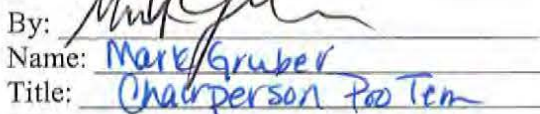 By:
Name: Mark Gruber
Title: Chairperson Pro Tem